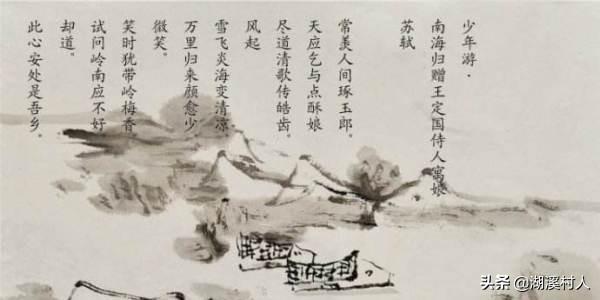 少年游·
南海归赠王定国侍人寓娘
苏轼
常羡人间琢玉郎。
天应乞与点酥娘
尽道清歌传皓齿。
风起
雪飞炎海变清凉。
万里归来颜愈少
微笑。
笑时犹带岭梅香。
试问岭南应不好
却道。
此心安处是吾乡。
头条 @湖溪村人